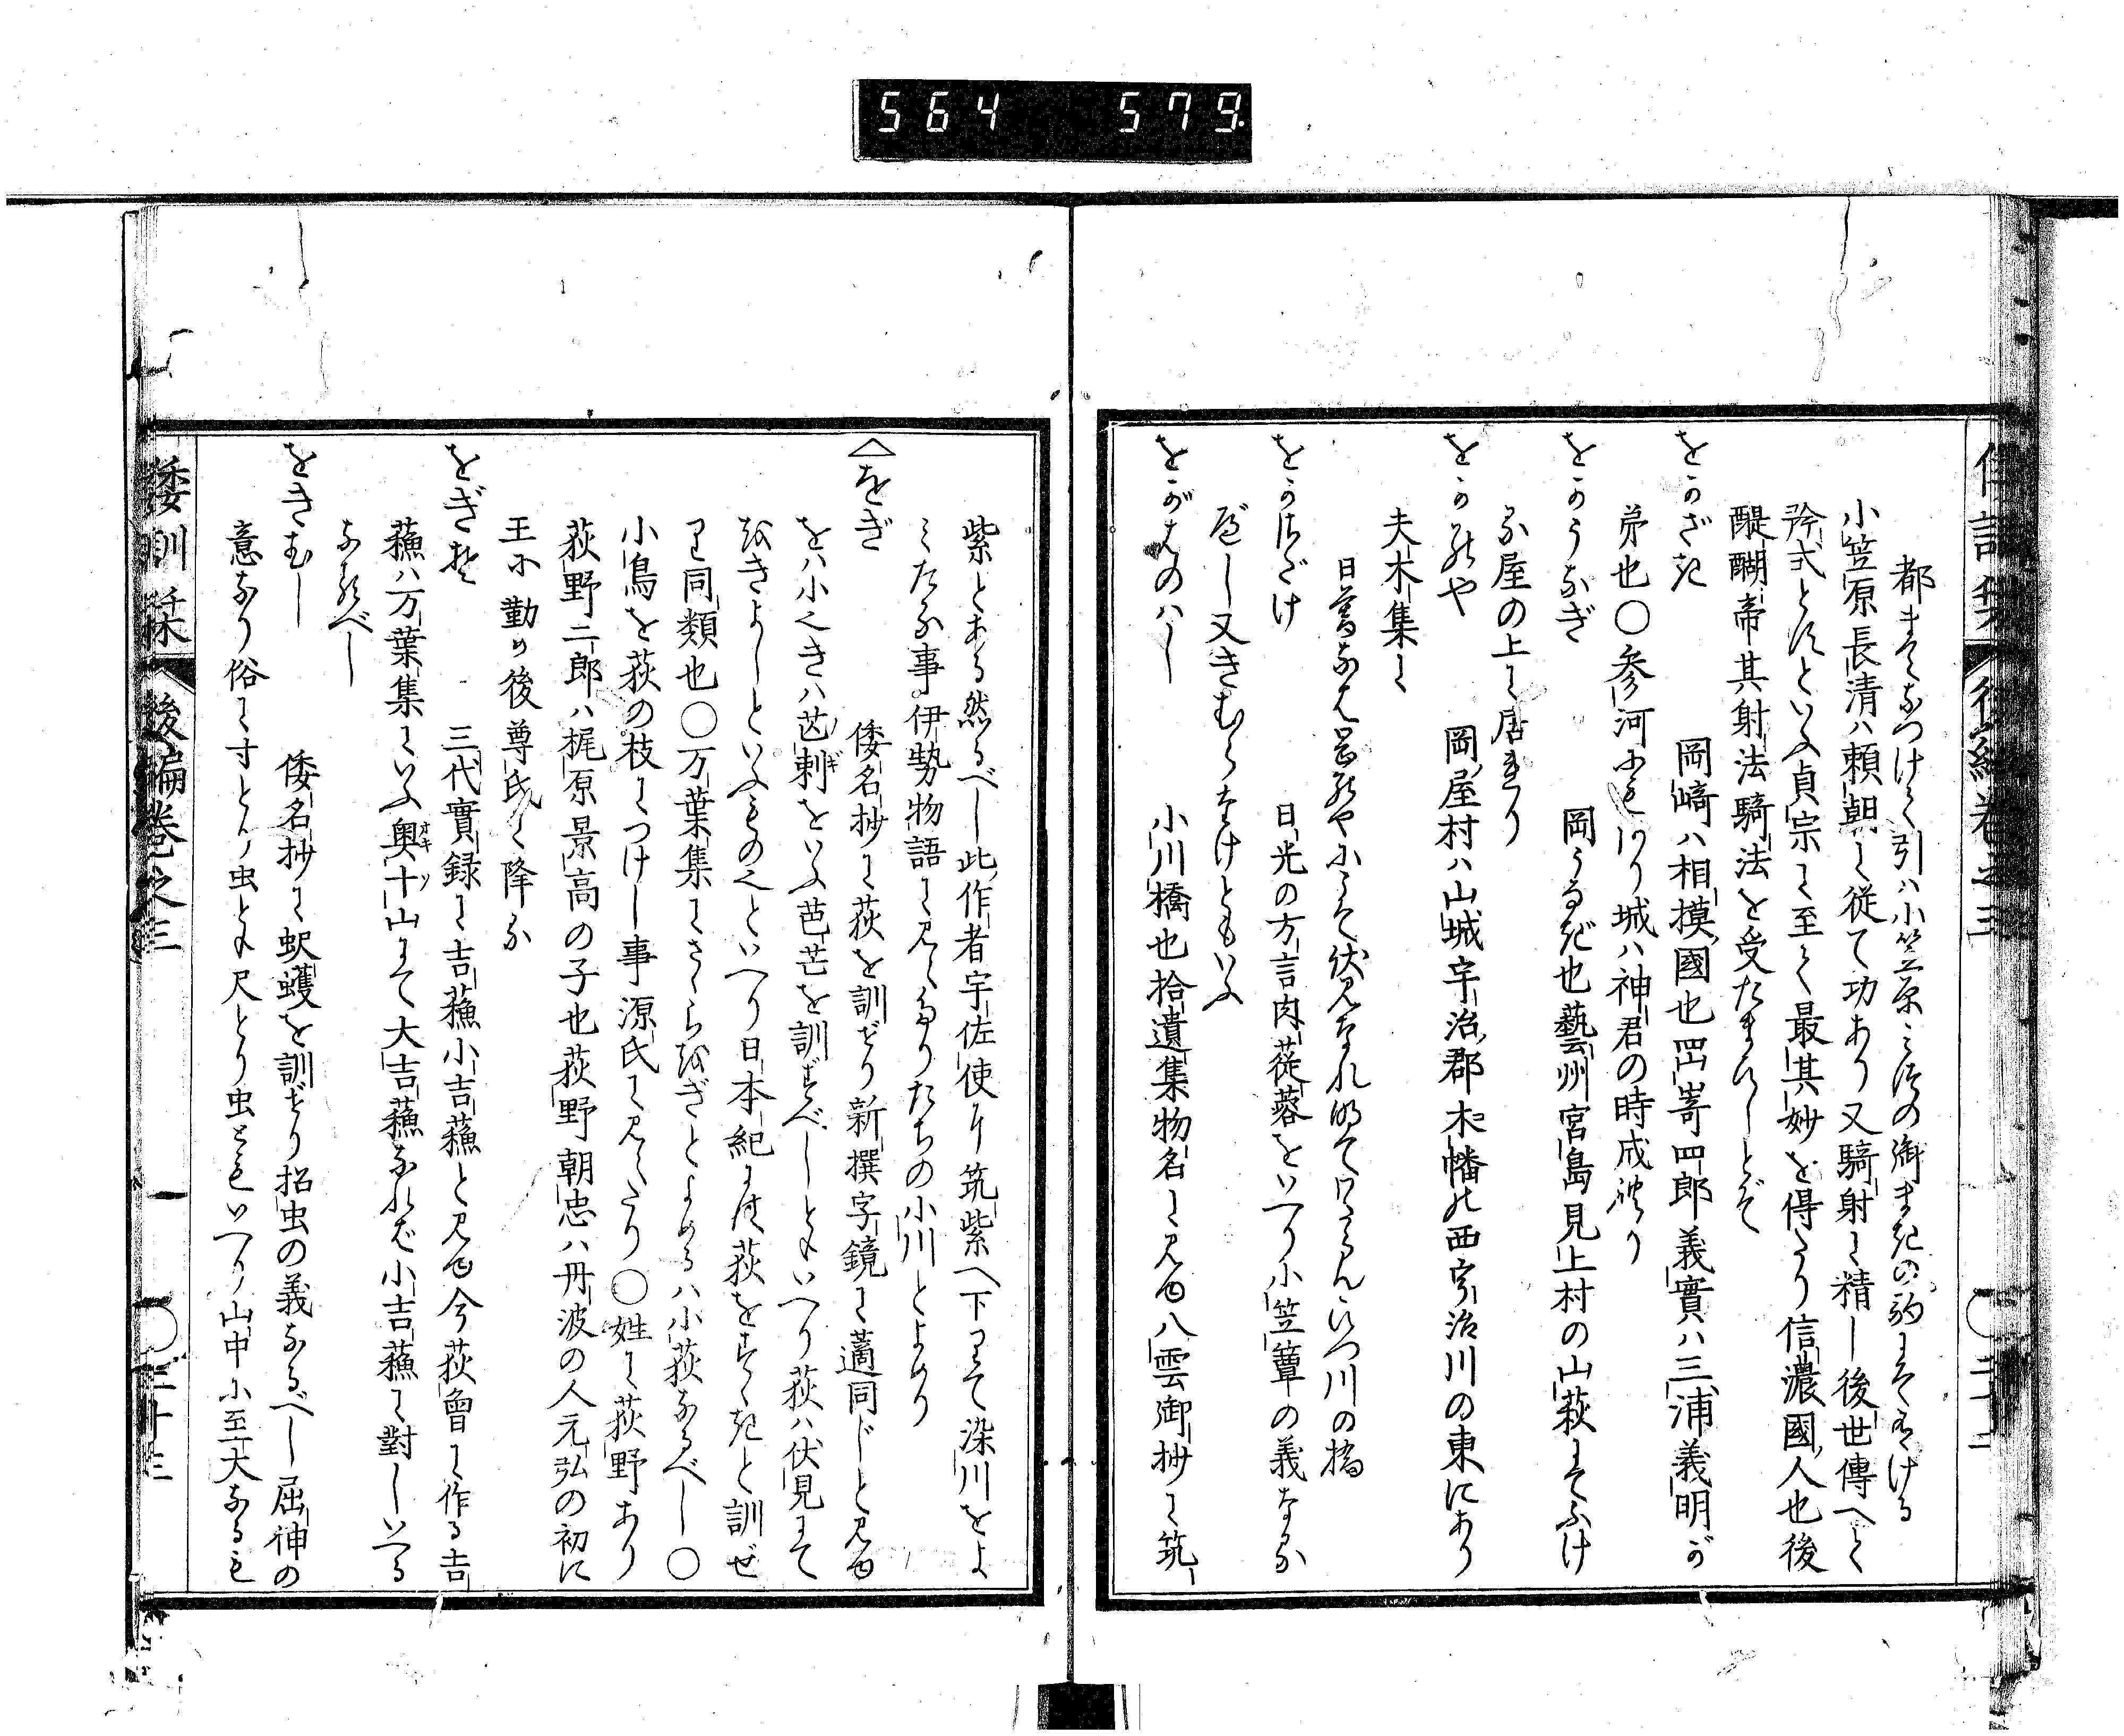 564 579
都まてなつけて引ハ小笠原ミつの御まきの駒にそ有ける
小笠原長清ハ頼朝に従て功あり又騎射に精し後世傳へて
弥式とすといふ貞宗に至て最其妙を得たり信濃國人也後
醍醐帝其射法騎法を受たまひしとそ
をかざき 岡﨑ハ相摸國也岡嵜四郎義實ハ三浦義明が
弟也〇参河にもあり城ハ神君の時成れり
をかうなぎ 岡うなぎ也藝州宮島見上村の山萩にそふけ
る屋の上に居れり
をかのや 岡屋村ハ山城宇治郡木幡の西宇治川の東にあり
夫木集に
日暮なは岡のやにこそ伏見なれ明てわたらんひつ川の橋
をかさだけ 日光の方言肉蓯蓉をいへり小笠蕈の義なる
べし又きむらたけともいふ
をがはのハし 小川橋也拾遺集物名に見ゆ八雲御抄に筑
紫とある然るべし此作者宇佐使にて筑紫へ下りて染川をよ
ミたる事伊勢物語に見えたりたちの小川とよめり
をぎ 倭名抄に荻を訓ぜり新撰字鏡に藡同じと見ゆ
をハ小也きハ芒刺をいふ芭芒を訓ずべしともいへり荻ハ伏見にて
おきよしといふもの也といへり日本紀には荻をすゝきと訓ぜ
り同類也〇万葉集にさゝらおぎとよめるハ小荻なるべし〇
小鳥を荻の枝につけし事源氏に見えたり〇姓に荻野あり
荻野二郎ハ梶原景高の子也荻野朝忠ハ丹波の人元弘の初に
王に勤め後尊氏に降る
をぎそ 三代實録に吉蘓小吉蘓と見ゆ今荻曾に作る吉
蘓ハ万葉集にいふ奥十山にて大吉蘓なれば小吉蘓に對しいへる
なるべし
をきむし 倭名抄に蚇蠖を訓ぜり招虫の義なるべし屈伸の
意なり俗に寸とり虫とも尺とり虫ともいへり山中に至大なるも
倭訓栞 後編巻之三 〇三十三